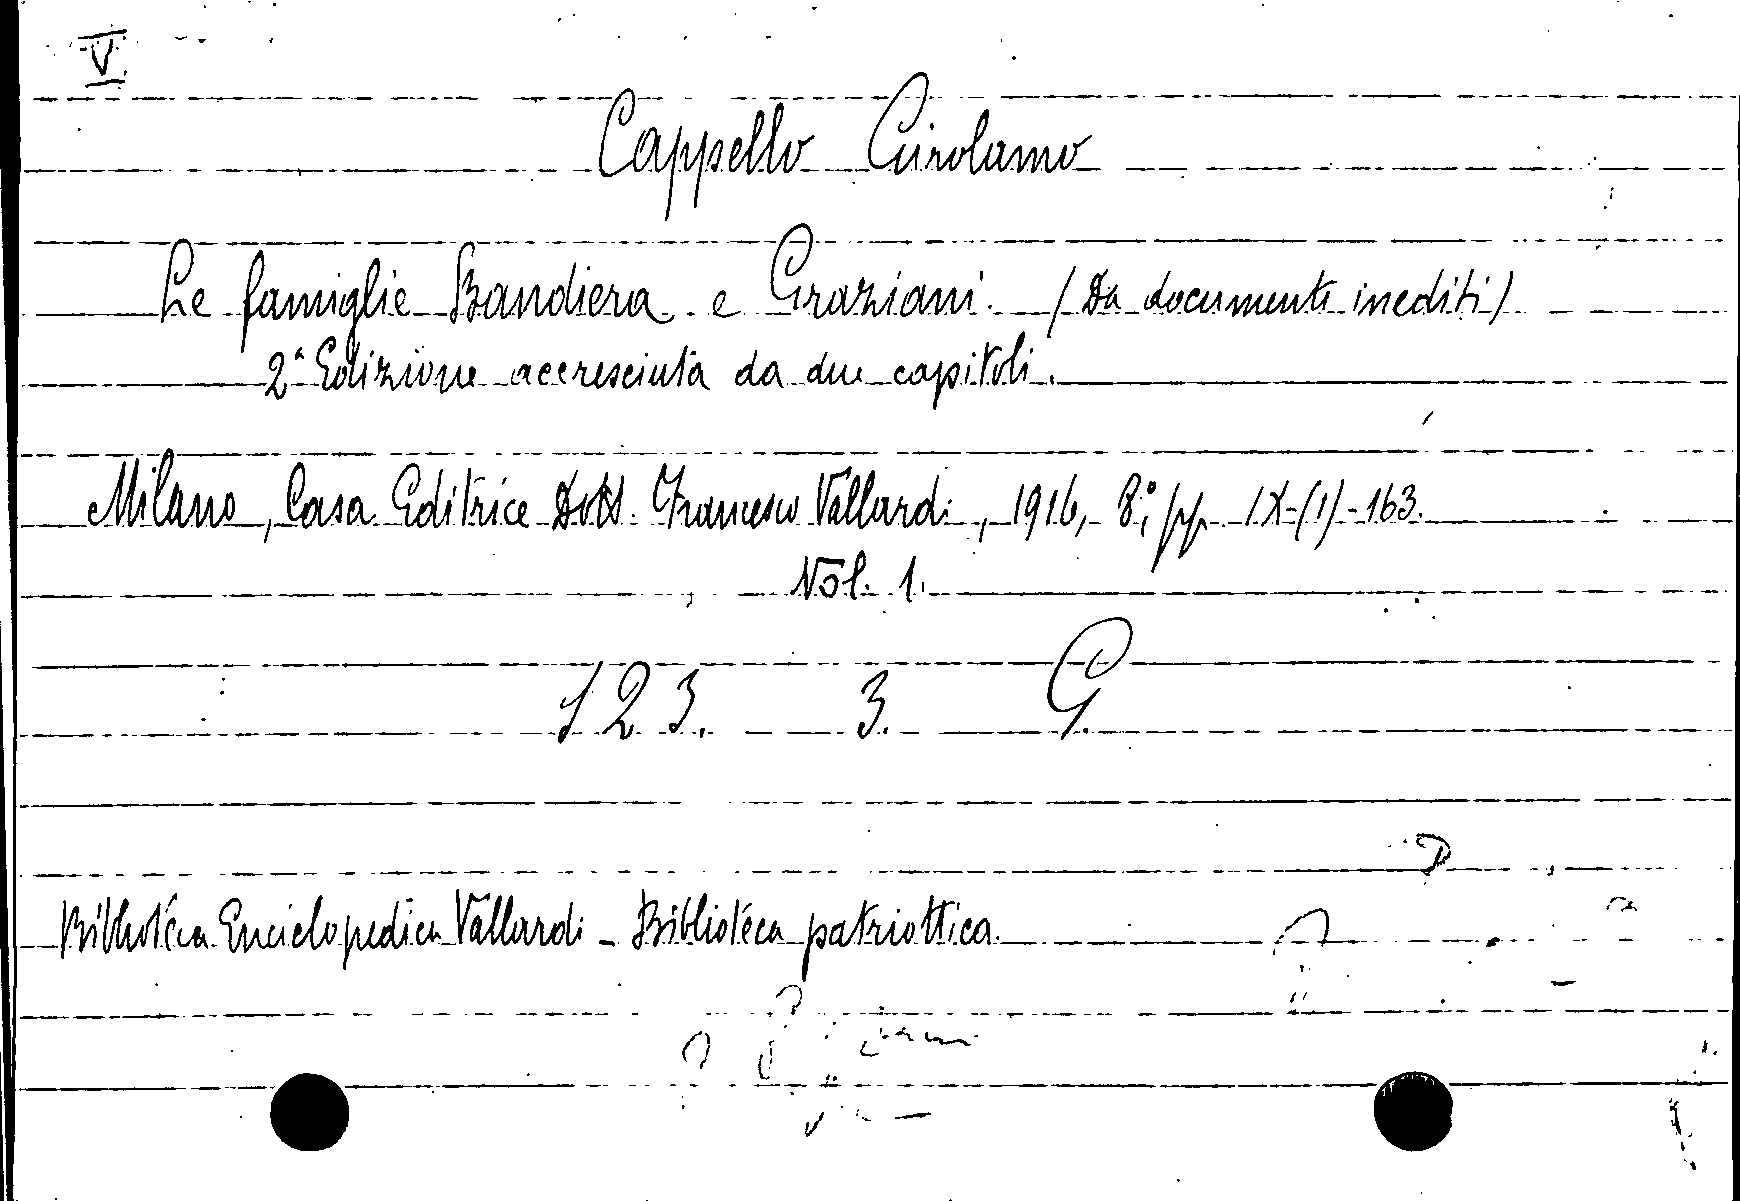 V
Cappello Girolamo
Le famiglie Bandiera e Graziani. (Da documenti inediti)
2ª Edizione accresciuta da due capitoli.
Milano, Casa Editrice Dott. Francesco Vallardi, 1916, 8°, pp. IX-(1)-163.
Vol. 1.
123. 3. G.
Biblioteca Enciclopedica Vallardi - Biblioteca patriottica.